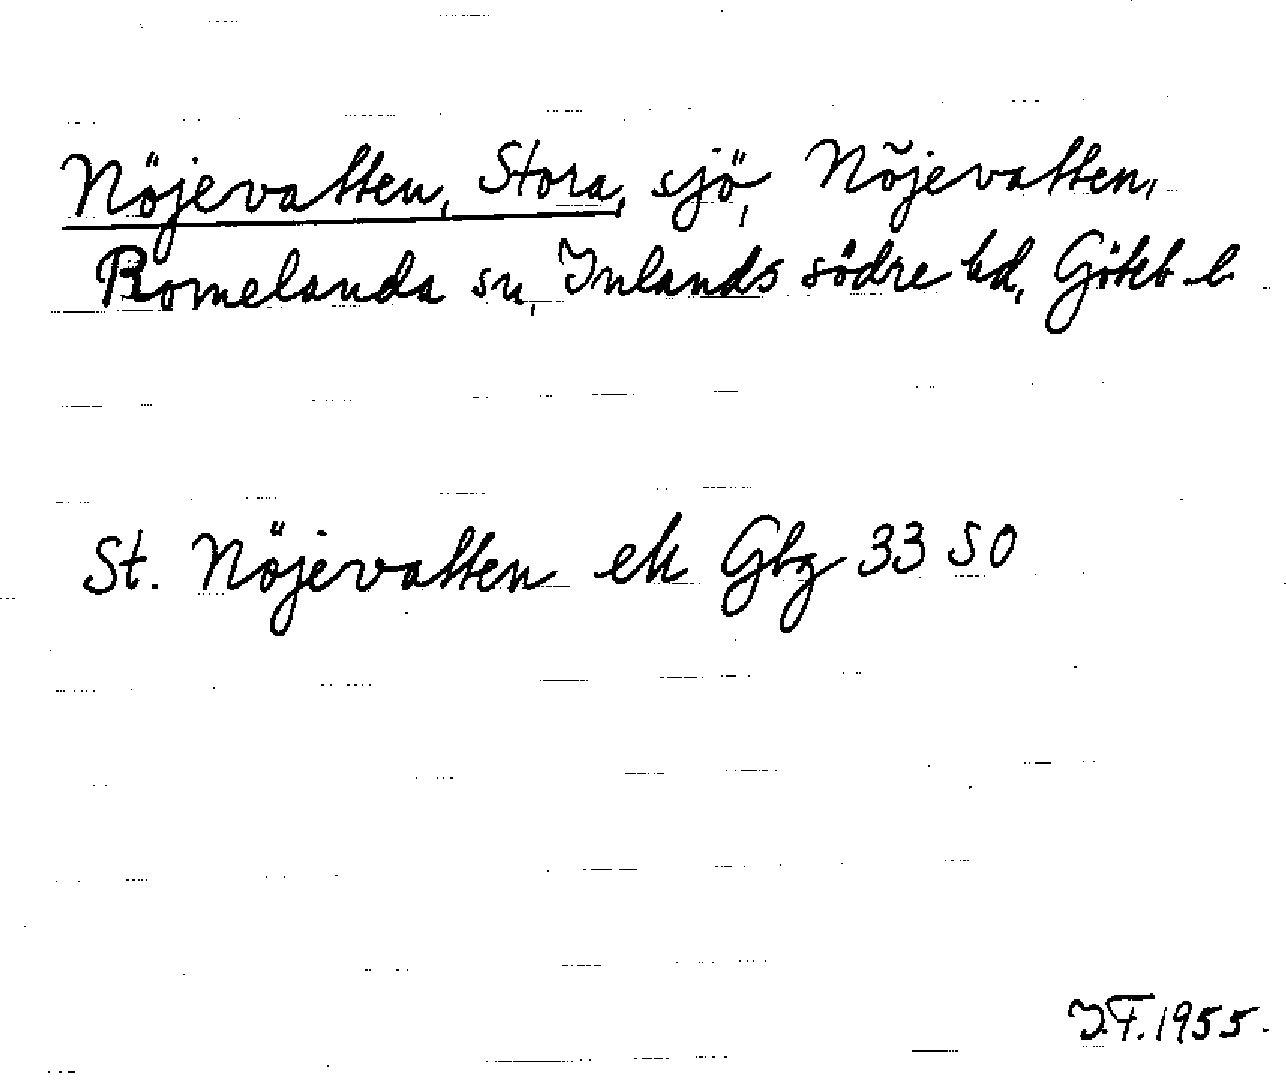 Nöjevatten, Stora, sjö, Nöjevatten,
Romelanda sn, Inlands södre hd, Götеb l
St. Nöjevatten ek Gbg 33 SO
I.F. 1955.